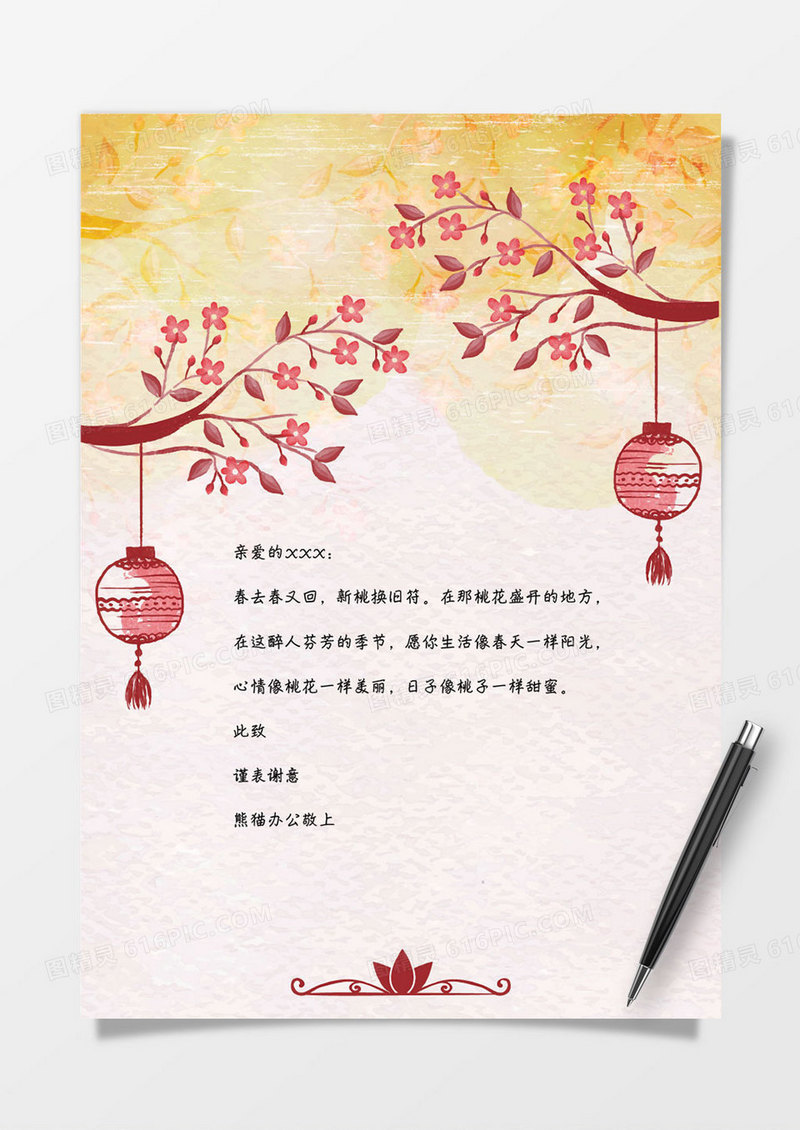 亲爱的xxx：
春去春又回，新桃换旧符。在那桃花盛开的地方，
在这醉人芬芳的季节，愿你生活像春天一样阳光，
心情像桃花一样美丽，日子像桃子一样甜蜜。
此致
谨表谢意
熊猫办公敬上
图精灵 616PIC.COM